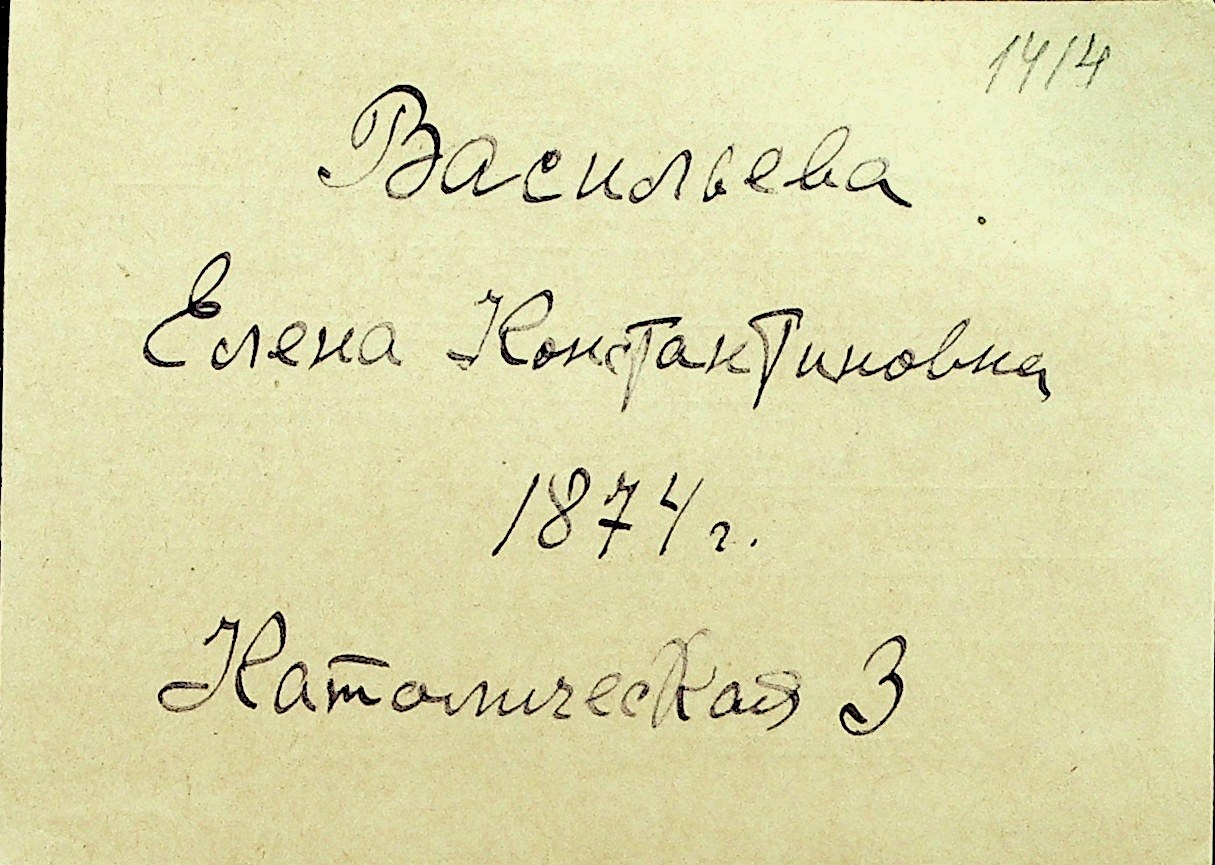 1414
Васильева
Елена Константиновна
1874 г.
Католическая 3